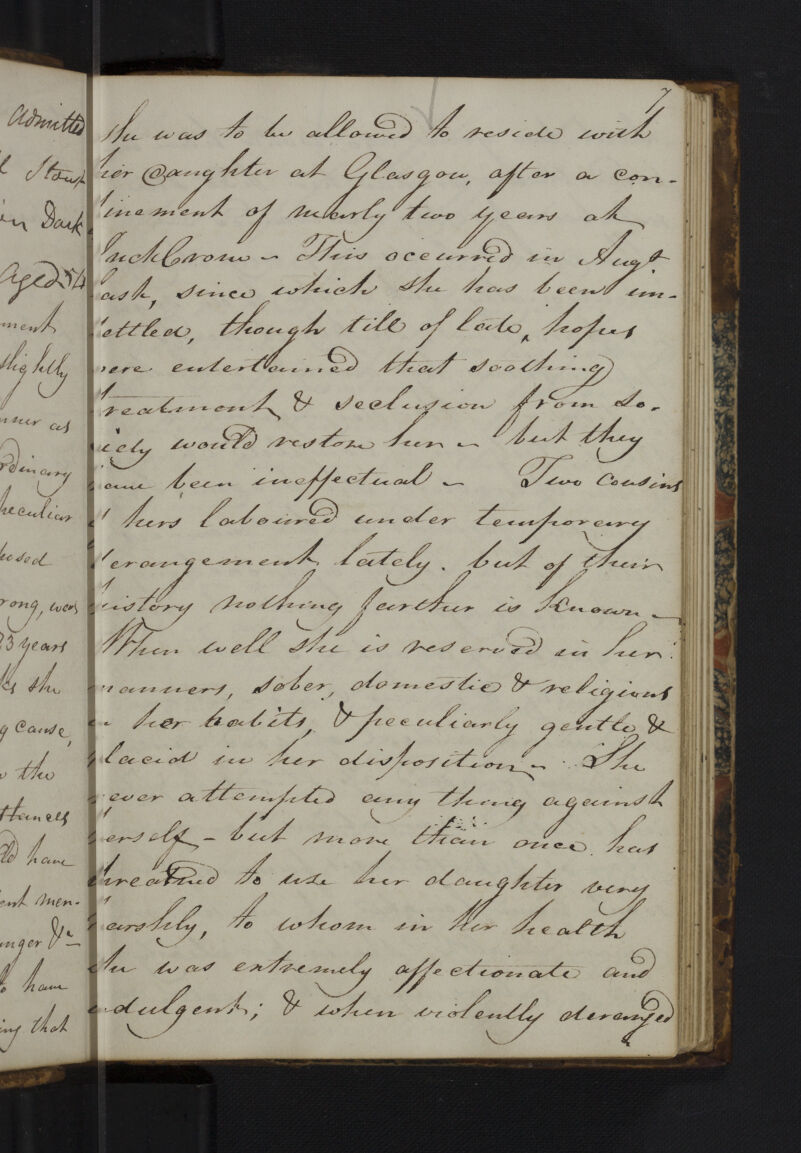 7
she was to be allowed to reside with
her Daughter at Glasgow, after a con-
finement of nearly two years at
This occurred in Augt
last, since which she has been un-
settled, though till of late, hopes
were entertained that soothing
treatment & seclusion from so-
ciety would restore her - but they
have been ineffectual - Two Cousins
of hers laboured under temporary
derangement lately. but of their
history nothing farther is known -
When well she is reserved in her
manners, sober, domestic & religious
in her habits, & peculiarly gentle &
placid in her disposition - She
never attempted any thing against
herself - but more than once has
threatned to use her daughter very
harshly, to whom in her health
she was extremely affectionate and
indulgent; & when violently deranged
admitted
in Dark
aged 54
ment
slightly
ner as
rdinary
peculiar
rong, was
23 years
she
g cause,
the
ttances
ld have
ent men-
nger &c
to have
ing that